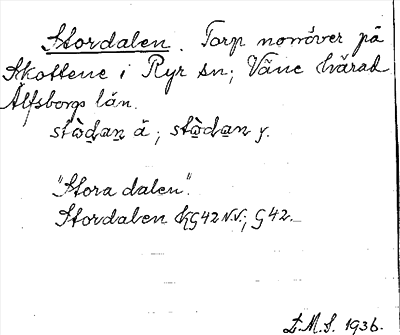 Stordalen. Torp norröver på
Skottene i Ryr sn; Väne härad
Älfsborgs län.
stò̱da̱n ä; stò̱da̱n y.
"Stora dalen".
Stordalen KG42N.V.; G42.
L.M.S. 1936.